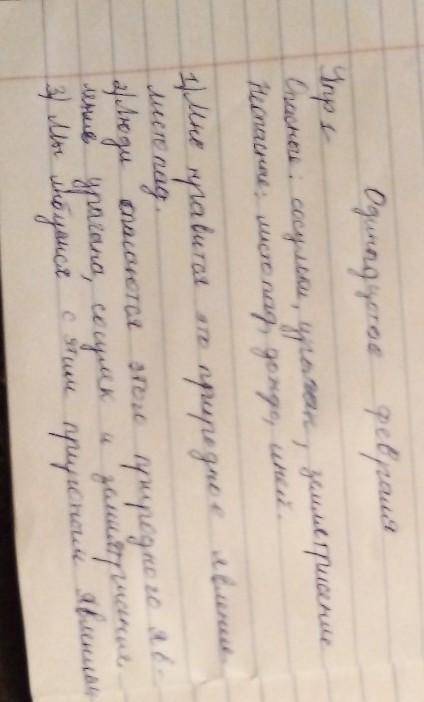 Одинадцатое февраля
Упр 1
Опасные: сосульки, ураган, земметрисение
Неопасные: листопад, дождь, иней.
1) Мне нравится это природное явление
листопад.
2) Люди опасаются этого природного яв-
ление урагана, сосулек и землятрисения.
3) Мы любуемся с этим природным явлением